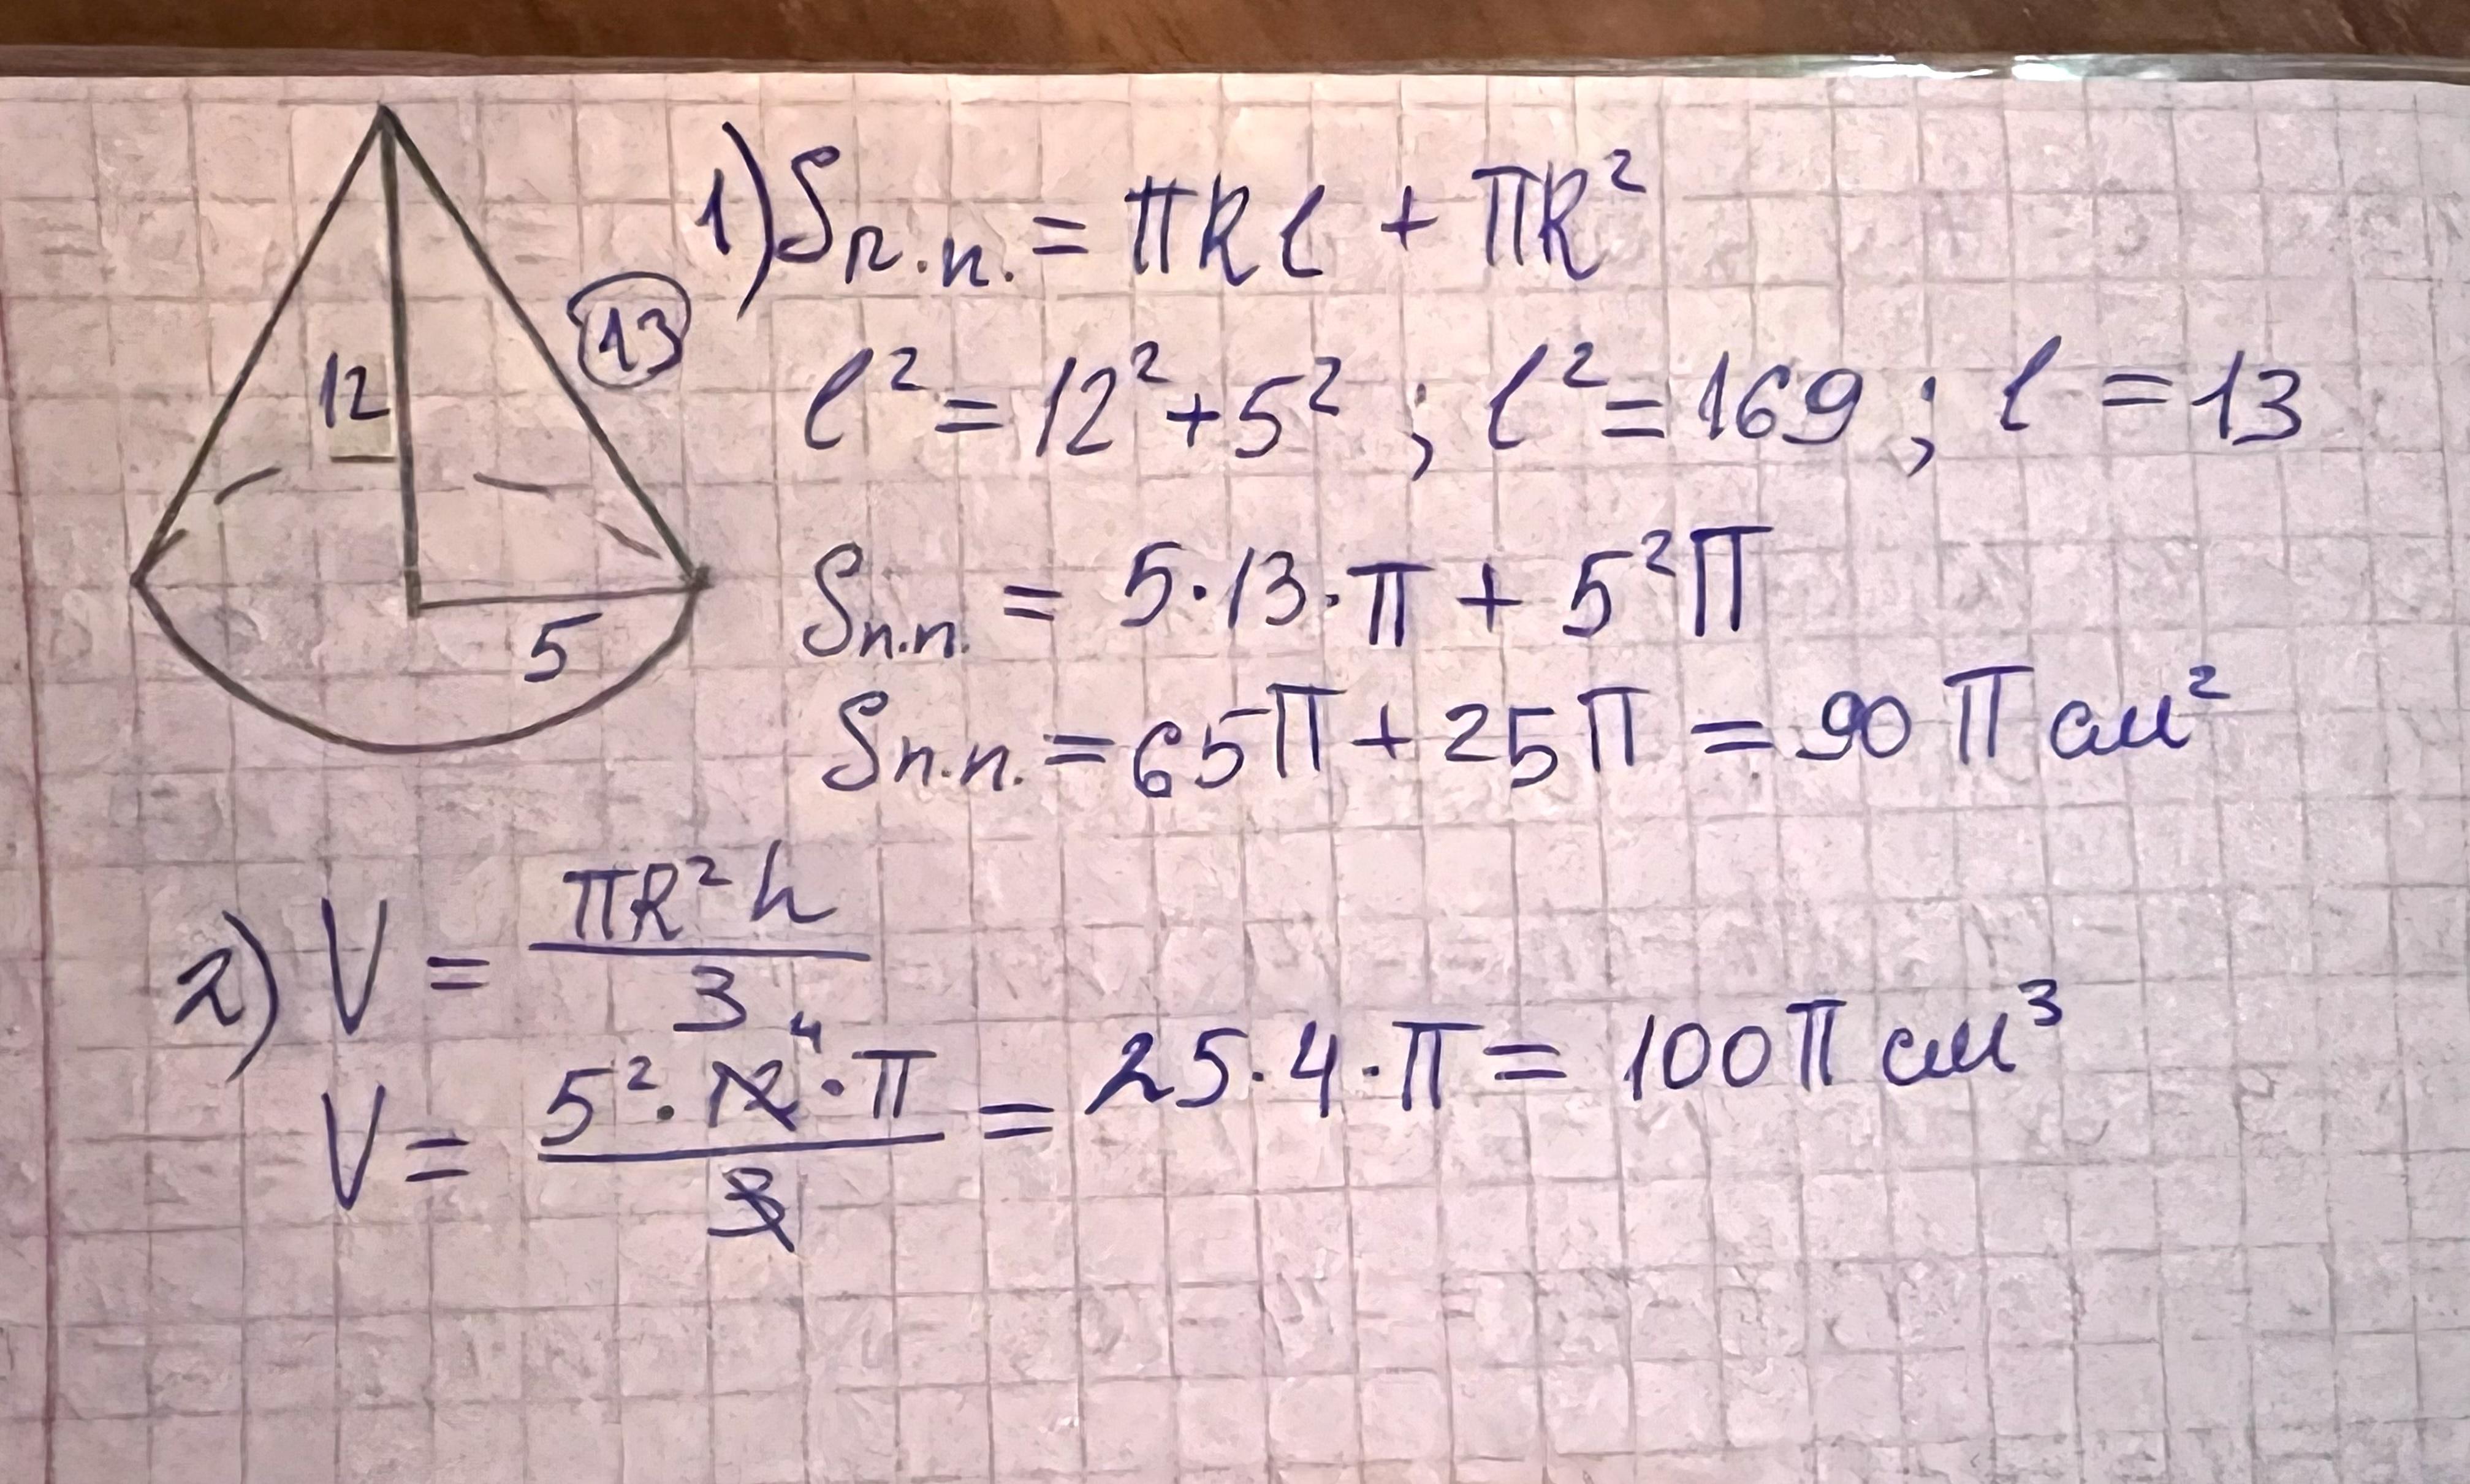 12
13
5
1) Sп.п. = πRl + πR²
l² = 12² + 5² ; l² = 169 ; l = 13
Sп.п. = 5·13·π + 5²π
Sп.п. = 65π + 25π = 90π см²
2) V = πR²h / 3
V = 5²·12⁴·π / 3 = 25·4·π = 100π см³